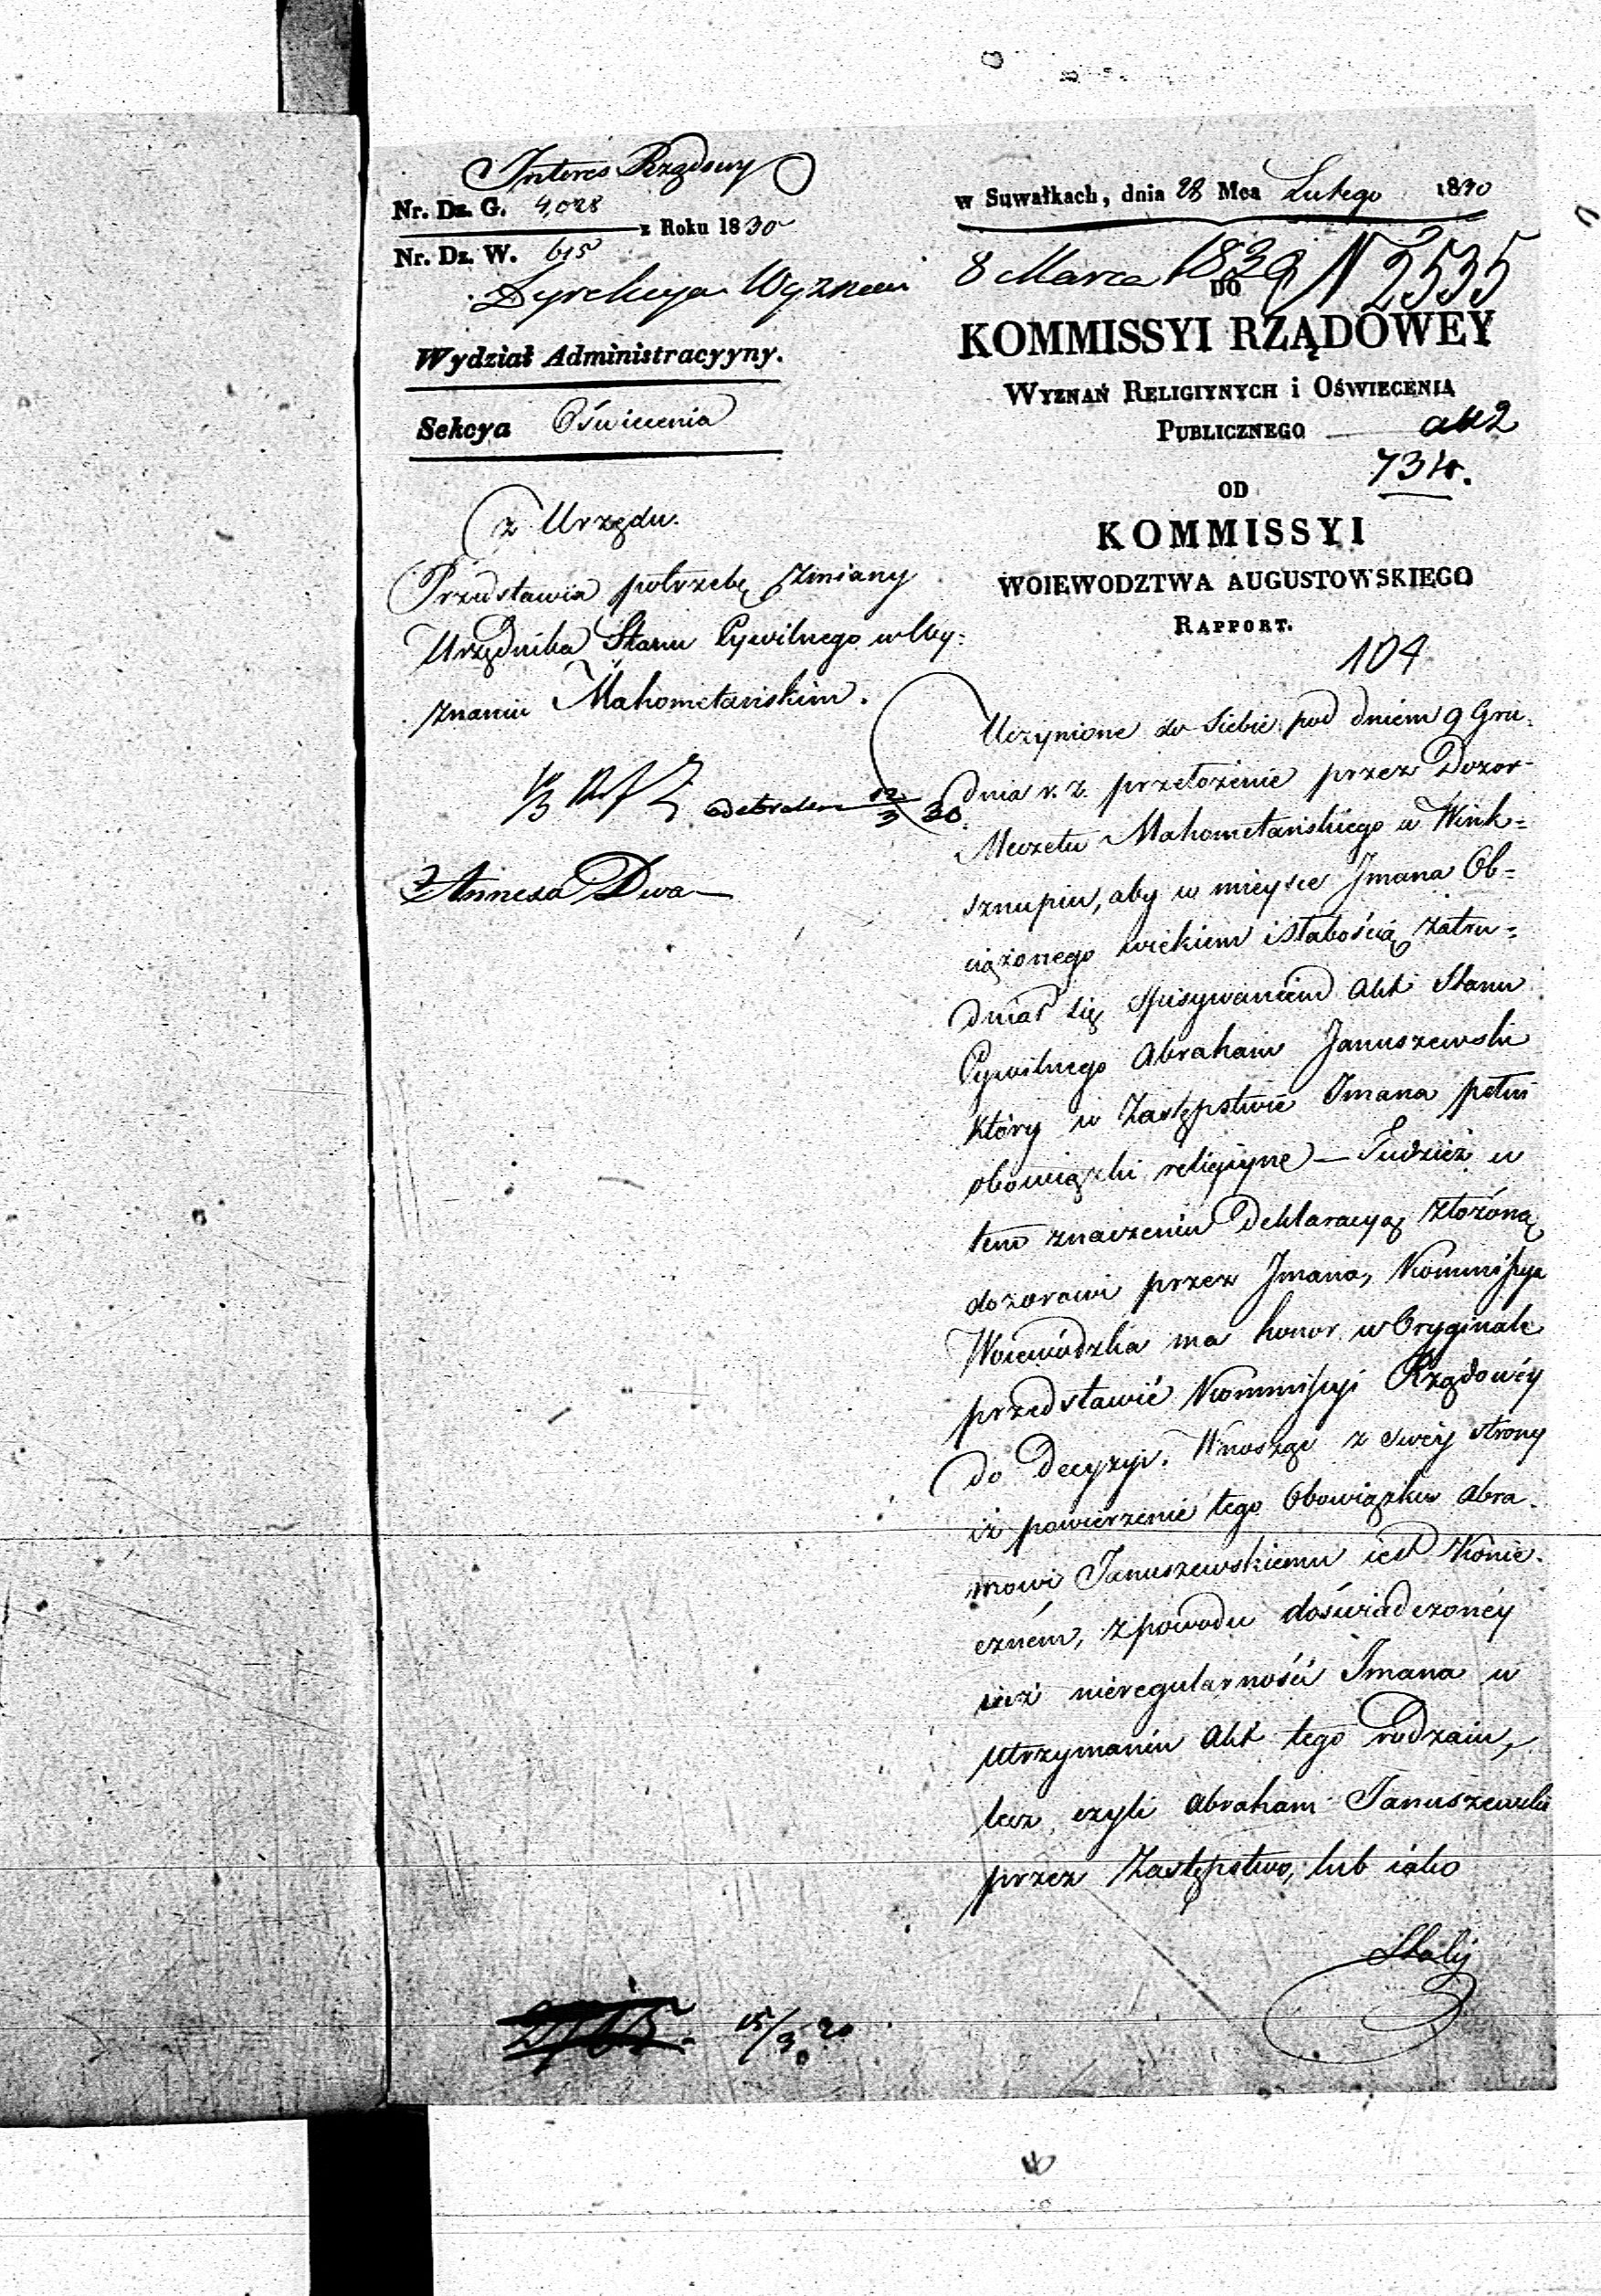 Interes Rządowy
Nr. Dz. G. 4,028
z Roku 1830
Nr. Dz. W. 615
Dyrekcya Wyznań
Wydział Administracyyny.
Sekcya Oświecenia
z Urzędu.
Przedstawia potrzebę zmiany
Urzędnika Stanu Cywilnego w Wy=
znaniu Mahometańskim.
odebrałem 12/3 30
2 Annexa Dwa
15/3 30
w Suwałkach, dnia 28 Mca Lutego 1830
8 Marca 1830 N 2535
DO
KOMMISSYI RZĄDOWEY
WYZNAŃ RELIGIYNYCH i OŚWIECENIA
PUBLICZNEGO
734.
OD
KOMMISSYI
WOIEWODZTWA AUGUSTOWSKIEGO
RAPPORT.
104
Uczynione do Siebie pod dniem 9 Gru=
dnia r. z. przełożenie przez Dozor
Meczetu Mahometańskiego w Wink=
sznupiu, aby w mieysce Jmana Ob=
ciążonego wiekiem i słabością zatru=
dniał się spisywaniem Akt Stanu
Cywilnego Abraham Januszewski
który w Zastępstwie Imana pełni
obowiązki religiyne — Tudzież w
tem znaczeniu Deklaracyą złożoną
dozorowi przez Jmana, Kommissya
Woiewódzka ma honor w Oryginale
przedstawić Kommissyi Rządowéy
do Decyzyi. Wnosząc z swéy strony
iż powierzenie tego Obowiązku Abra=
mowi Januszewskiemu iest Konie=
czném, z powodu doświadczonéy
iuż nieregularności Imana w
utrzymaniu Akt tego rodzaiu,
lecz czyli Abraham Januszewski
przez Zastępstwo, lub iako
Stały